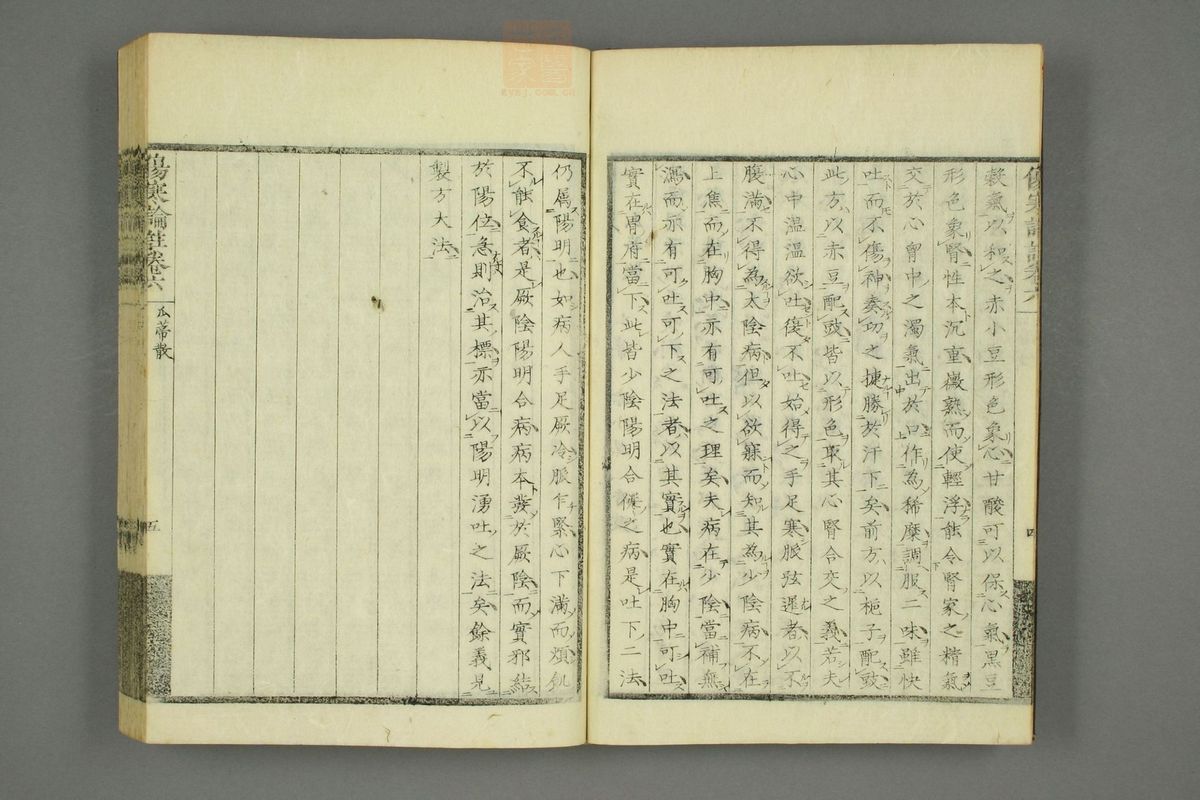 穀氣以和之赤小豆形色象心甘酸可以保心氣黒豆
形色象腎性本沉重黴熟而使輕浮能令腎家之精氣
交於心胷中之濁氣出於口作為稀糜調服二味雖快
吐而不傷神奏功之捷勝於汗下矣前方以梔子配豉
此方以赤豆配豉皆以形色取其心腎合交之義若夫
心中溫溫欲吐復不吐始得之手足寒脈弦遲者以不
腹滿不得為太陰病但以欲寐而知其為少陰病不在
上焦而在胸中亦有可吐之理矣夫病在少陰當補無
瀉而亦有可吐可下之法者以其實也實在胸中可吐
實在胃府當下此皆少陰陽明合僃之病是吐下二法
仍屬陽明也如病人手足厥冷脈乍緊心下滿而煩飢
不能食者是厥陰陽明合病病本發於厥陰而實邪結
於陽位急則治其標亦當以陽明湧吐之法矣餘義見
製方大法
傷寒論註卷六
瓜蒂散
五